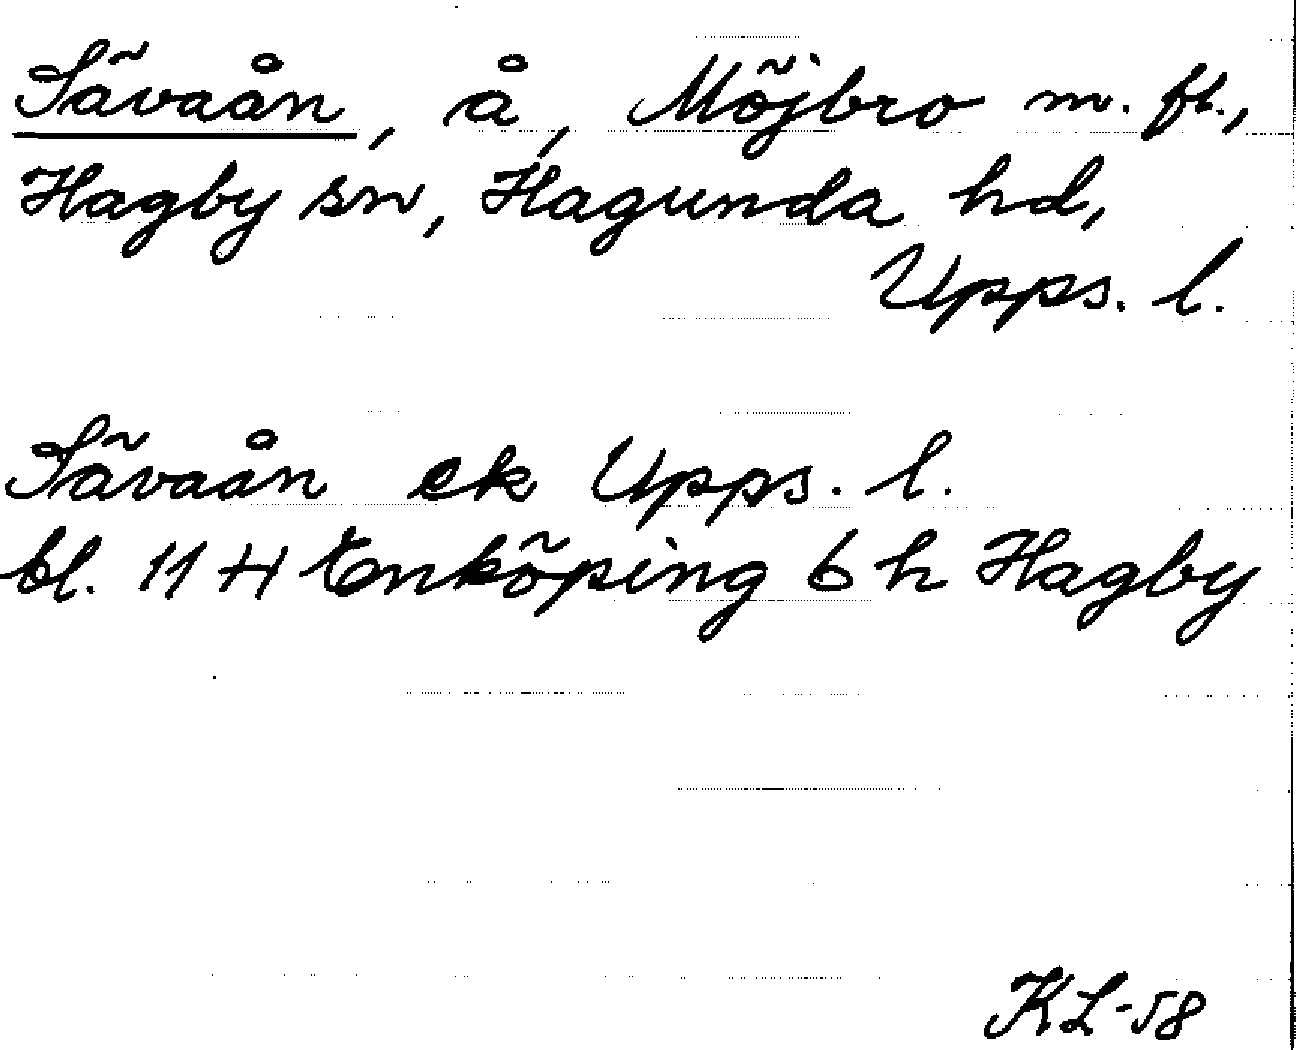 Sävaån, å, Möjbro m. fl.,
Hagby sn, Hagunda hd,
Upps. l.
Sävaån ek Upps. l.
bl. 11 H Enköping 6 h Hagby
KL-58